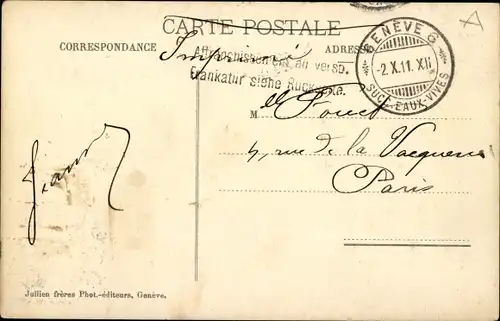 CARTE POSTALE
CORRESPONDANCE
ADRESSE
Imprimé
Affranchissement au verso.
Frankatur siehe Rückseite.
GENÈVE 6
-2.X.11.XII
SUCC. EAUX-VIVES
M
4, rue de la Vacquerie
Paris
Jullien frères Phot.-éditeurs, Genève.